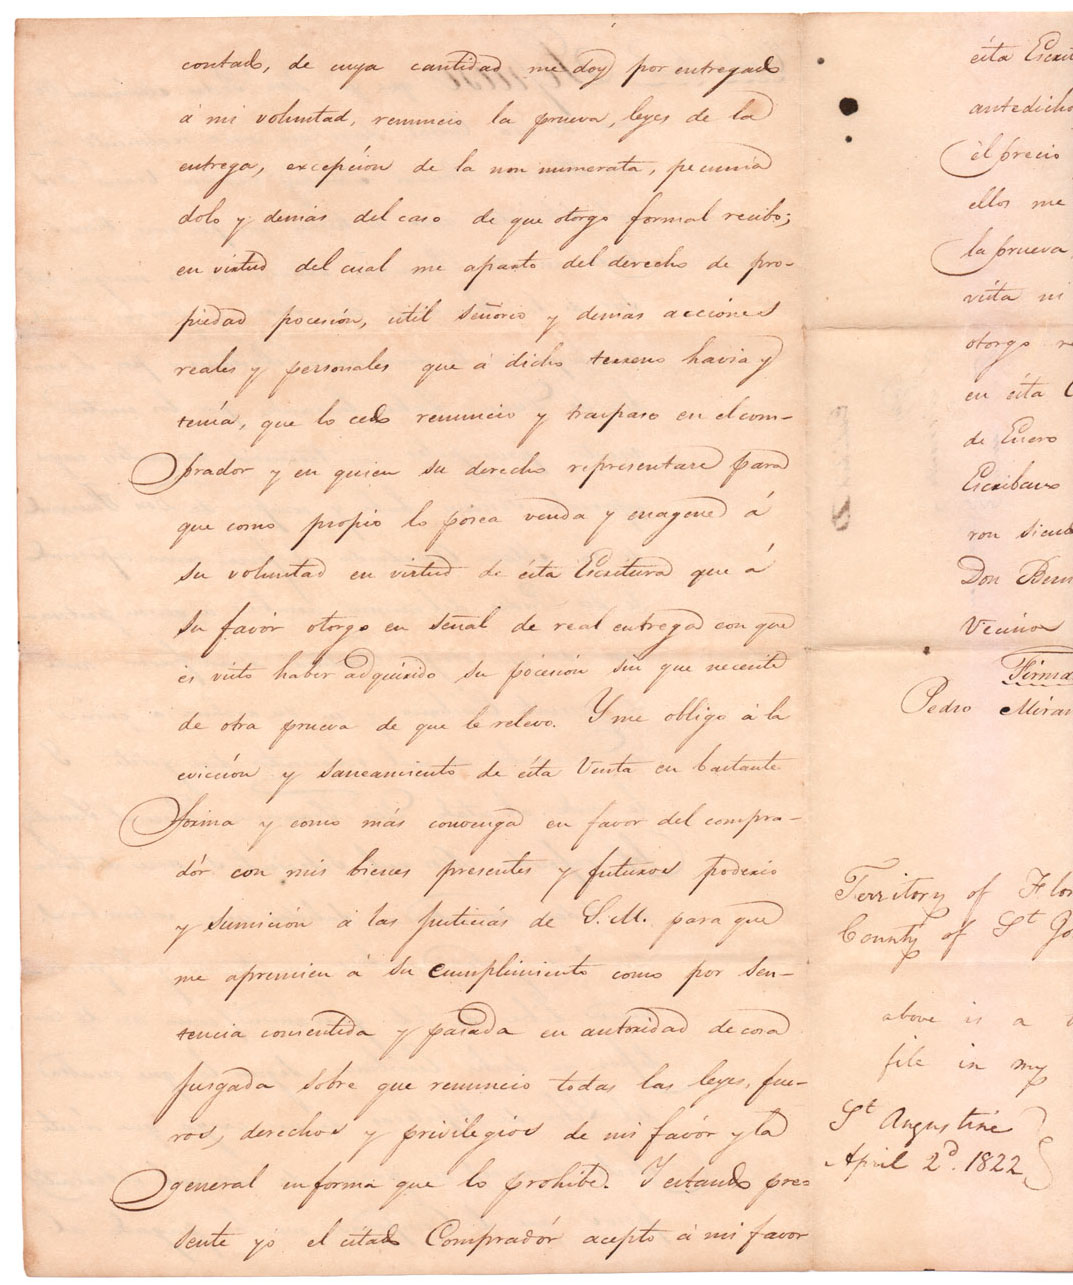 contado, de cuya cantidad me doy por entregado
á mi voluntad, renuncio la prueva, leyes de la
entrega, excepción de la non numerata, pecunia
dolo y demás del caso de que otorgo formal recibo;
en virtud del cual me aparto del derecho de pro-
piedad pocesión, útil señorio y demás acciónes
reales y personales que á dicho terreno havia y
tenía, que lo cedo renuncio y traspaso en el com-
prador y en quien su derecho representare para
que como propio lo pósea venda y enagene á
su voluntad en virtud de ésta Escritura que á
su favór otorgo en señal de real entrega con que
es visto haber adquirido su pocesión sin que necesite
de otra prueva de que le relevo. Y me obligo á la
evicción y saneamiento de ésta Venta en bastante
forma y como más convenga en favor del compra-
dór con mis bienes presentes y futuros poderio
y sumisión á las Justiciás de S. M. para que
me apremien á su cumplimiento como por sen-
tencia consentida y pasada en autoridad de cosa
jusgada sobre que renuncio todas las leyes, fue-
ros, derechos y privilegios de mi favór y la
general en forma que lo prohibe. Y estando pre-
sente yó el citado Compradór acepto á mi favor
ésta Escrit
antedicho
él precio
ellos me
la prueva,
vista ni
otorgo re
en ésta C
de Enero
Escribano
ron siend
Don Bern
Vecinos
Firma
Pedro Miran
Territory of Flor
County of St Jo
above is a t
file in my
St Augustine
April 2d. 1822